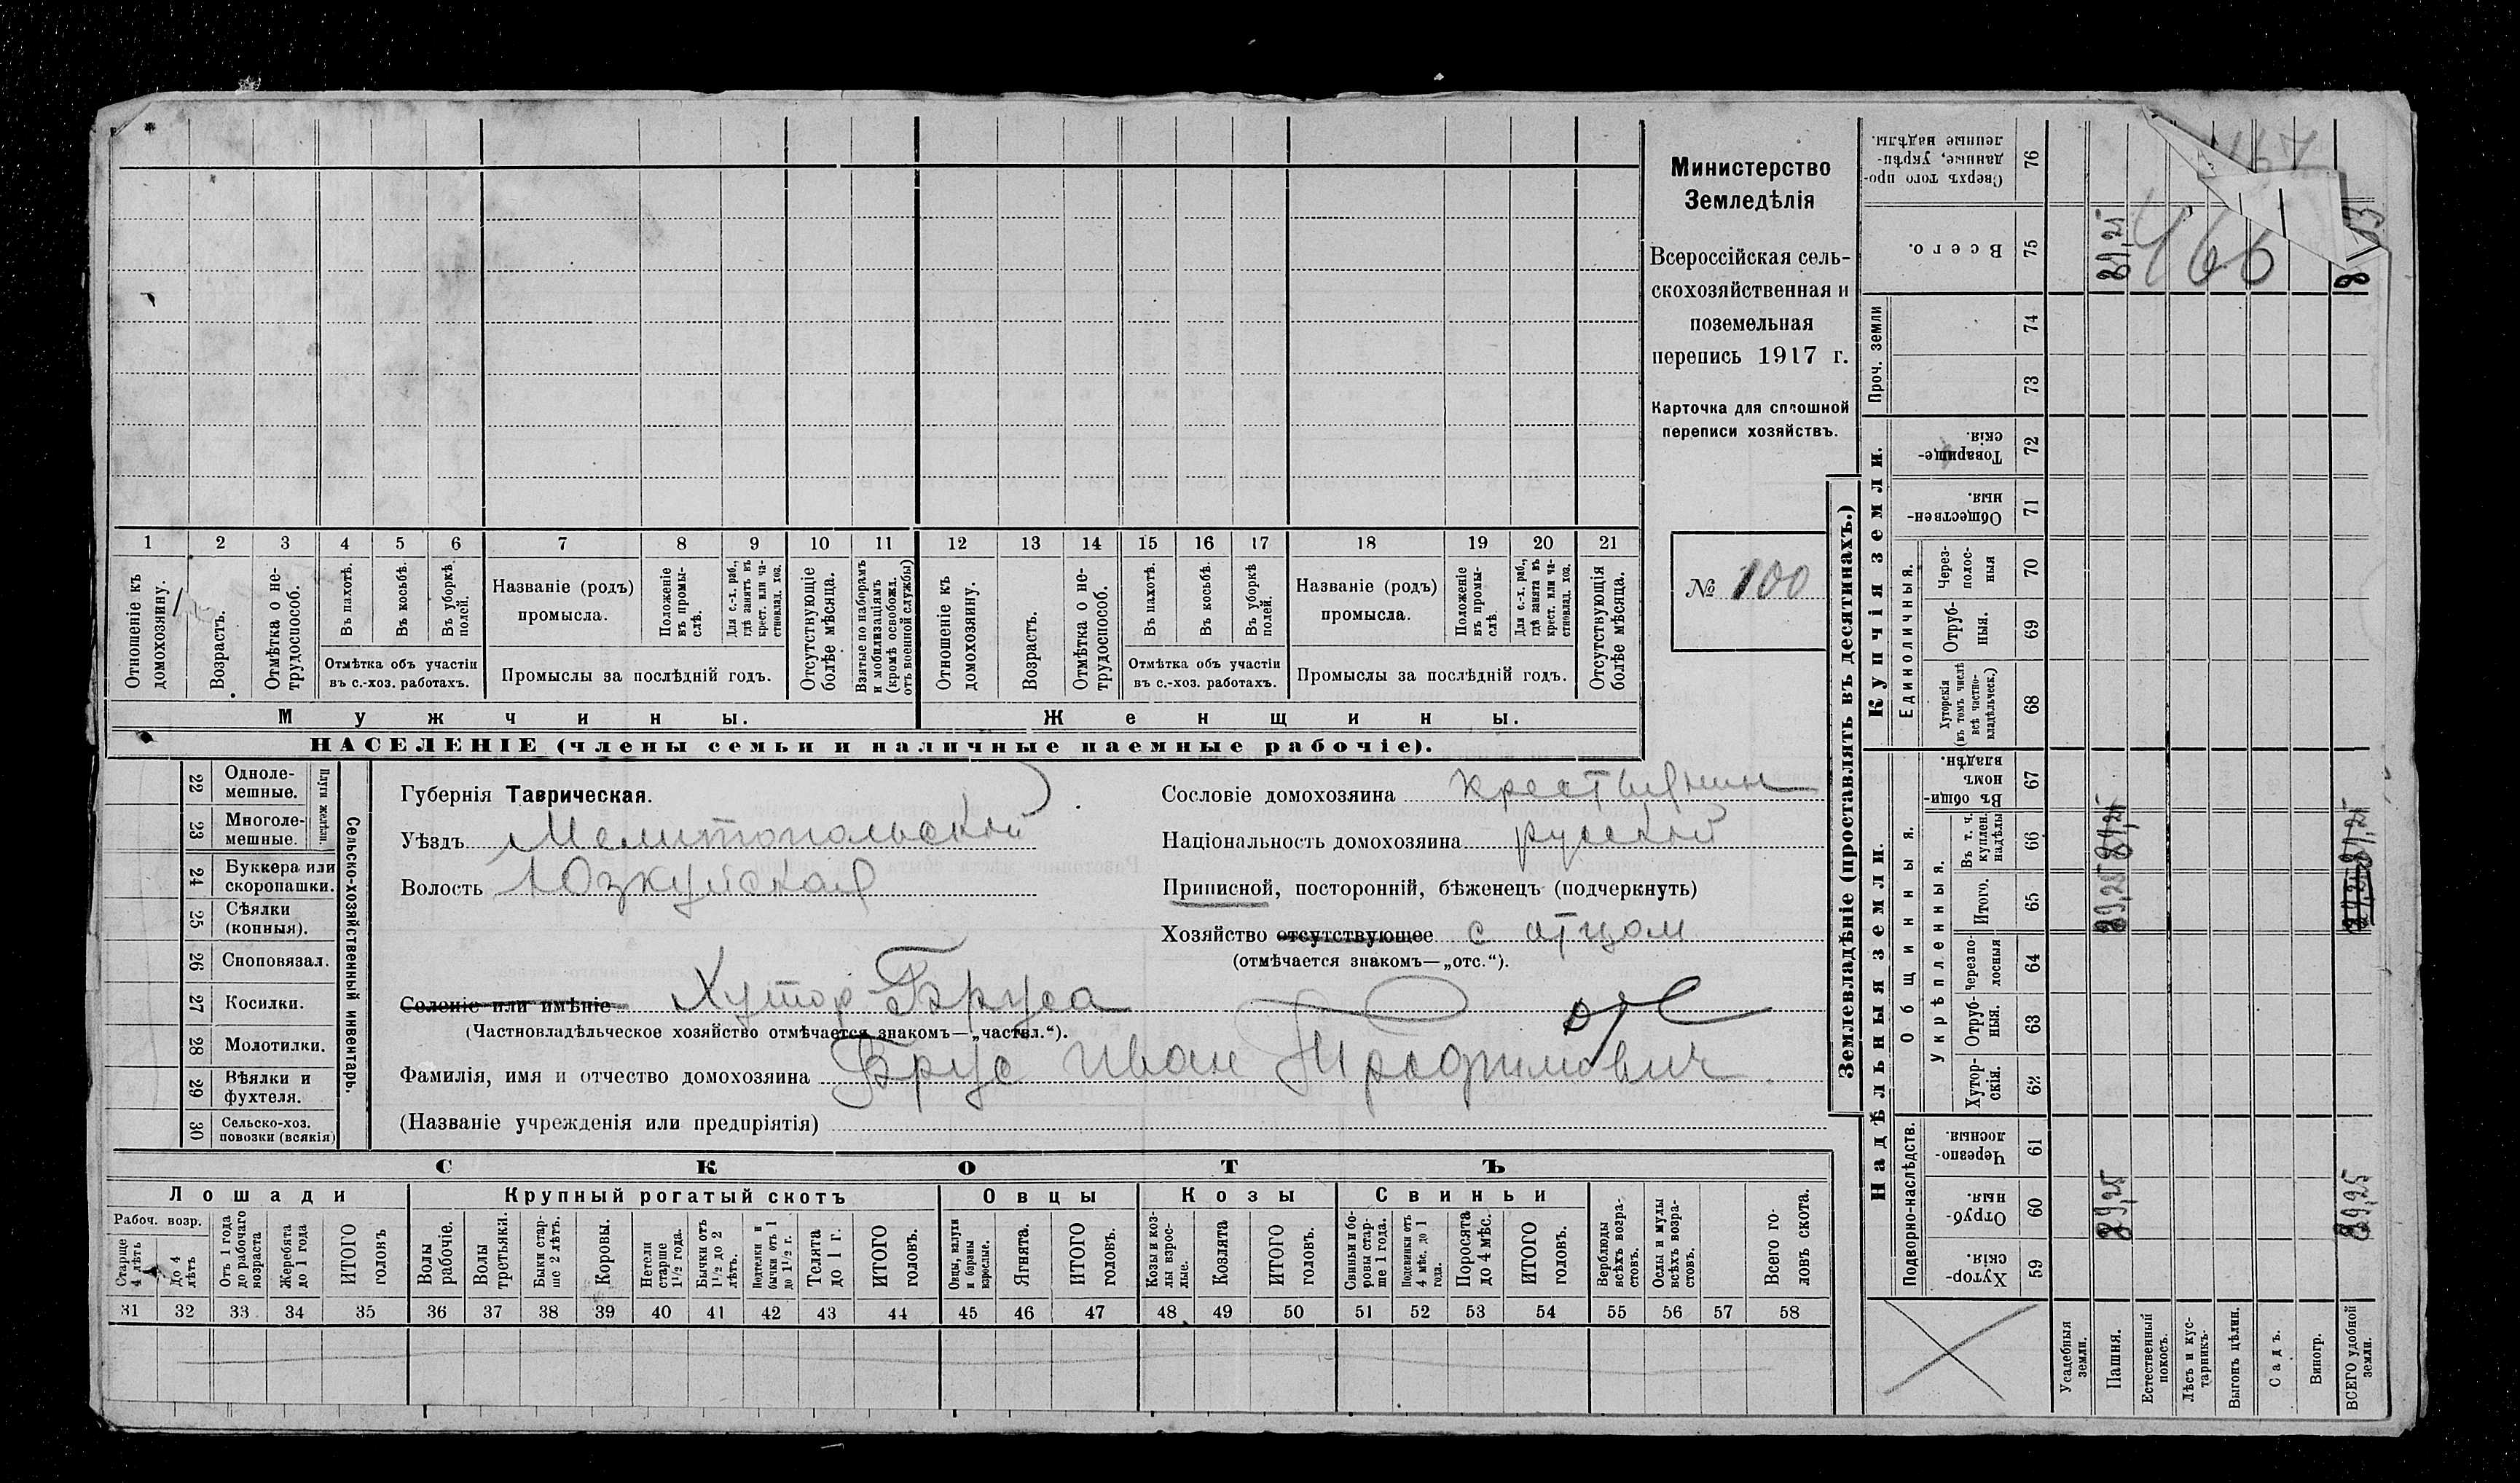 Министерство
Земледѣлія
Всероссійская сель-
скохозяйственная и
поземельная
перепись 1917 г.
Карточка для сплошной
переписи хозяйствъ.
№ 100
1 2 3 4 5 6 7 8 9 10 11 12 13 14 15 16 17 18 19 20 21
Отношеніе къ домохозяину.
Возрастъ.
Отмѣтка о не-трудоспособ.
Въ пахотѣ.
Въ косьбѣ.
Въ уборкѣ полей.
Отмѣтка объ участіи
въ с.-хоз. работахъ.
Названіе (родъ)
промысла.
Положеніе въ промы-слѣ.
Для с.-х. раб., гдѣ занятъ въ крест. или ча-стновлад. хоз.
Промыслы за послѣдній годъ.
Отсутствующіе болѣе мѣсяца.
Взятые по наборамъ и мобилизаціямъ (кромѣ освобожд. отъ военной службы)
Отношеніе къ домохозяину.
Возрастъ.
Отмѣтка о не-трудоспособ.
Въ пахотѣ.
Въ косьбѣ.
Въ уборкѣ полей.
Отмѣтка объ участіи
въ с.-хоз. работахъ.
Названіе (родъ)
промысла.
Положеніе въ промы-слѣ.
Для с.-х. раб., гдѣ занята въ крест. или ча-стновлад. хоз.
Промыслы за послѣдній годъ.
Отсутствующія болѣе мѣсяца.
Мужчины.
Женщины.
НАСЕЛЕНІЕ (члены семьи и наличные наемные рабочіе).
Сельско-хозяйственный инвентарь.
Плуги желѣзн.
22 Одноле-мешные.
23 Многоле-мешные.
24 Буккера или скоропашки.
25 Сѣялки (конныя).
26 Сноповязал.
27 Косилки.
28 Молотилки.
29 Вѣялки и фухтеля.
30 Сельско-хоз. повозки (всякія)
Губернія Таврическая.
Уѣздъ Мелитопольский
Волость Юзкуйская
Сословіе домохозяина крестьянин
Національность домохозяина русский
Приписной, посторонній, бѣженецъ (подчеркнуть)
Хозяйство отсутствующее с отцом
(отмѣчается знакомъ—„отс.“).
Селеніе или имѣніе Хутор Бруса
(Частновладѣльческое хозяйство отмѣчается знакомъ—„частвл.“).
Фамилія, имя и отчество домохозяина Брус Иван Трофимович
(Названіе учрежденія или предпріятія)
СКОТЪ
Лошади
Крупный рогатый скотъ
Овцы
Козы
Свиньи
Рабоч. возр.
Старше 4 лѣтъ
До 4 лѣтъ
Отъ 1 года до рабочаго возраста
Жеребята до 1 года
ИТОГО головъ
Волы рабочіе.
Волы третьяки.
Быки стар-ше 2 лѣтъ.
Коровы.
Нетели старше 1½ года.
Бычки отъ 1½ до 2 лѣтъ.
Подтелки и бычки отъ 1 до 1½ г.
Телята до 1 г.
ИТОГО головъ.
Овцы, валухи и бараны взрослые.
Ягнята.
ИТОГО головъ.
Козы и коз-лы взрос-лые.
Козлята
ИТОГО головъ.
Свиньи и бо-ровы стар-ше 1 года.
Подсвинки отъ 4 мѣс. до 1 года.
Поросята до 4 мѣс.
ИТОГО головъ.
Верблюды всѣхъ возра-стовъ.
Ослы и мулы всѣхъ возра-стовъ.
Всего го-ловъ скота.
31 32 33 34 35 36 37 38 39 40 41 42 43 44 45 46 47 48 49 50 51 52 53 54 55 56 57 58
Землевладѣніе (проставлять въ десятинахъ.)
Надѣльныя земли.
Купчія земли.
Проч. земли
Подворно-наслѣдств.
Общинныя.
Укрѣпленныя.
Единоличныя.
Хутор-скія. 59
Отруб-ныя. 60
Черезпо-лосныя. 61
Хутор-скія. 62
Отруб-ныя. 63
Черезпо-лосныя 64
Итого. 65
Въ т. ч. куплен. надѣлы 66
Въ общи-номъ владѣн. 67
Хуторскія (въ томъ числѣ всѣ частно-владѣльческ.) 68
Отруб-ныя. 69
Через-полос-ныя 70
Обществен-ныя. 71
Товарище-скія. 72
73
74
Всего. 75
Сверхъ того про-данные, укрѣп-ленные надѣлы. 76
Усадебныя земли.
Пашня. 89,25 89,25 89,25 89,25
Естественный покосъ.
Лѣсъ и кус-тарникъ.
Выгонъ цѣлин.
Садъ.
Виногр.
ВСЕГО удобной земли. 89,25 89,25 89,25
466
167